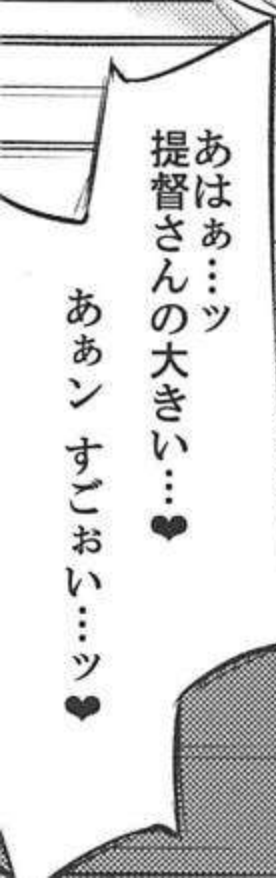 あはぁ…ッ
提督さんの大きい…❤
あぁン すごぉい…ッ❤